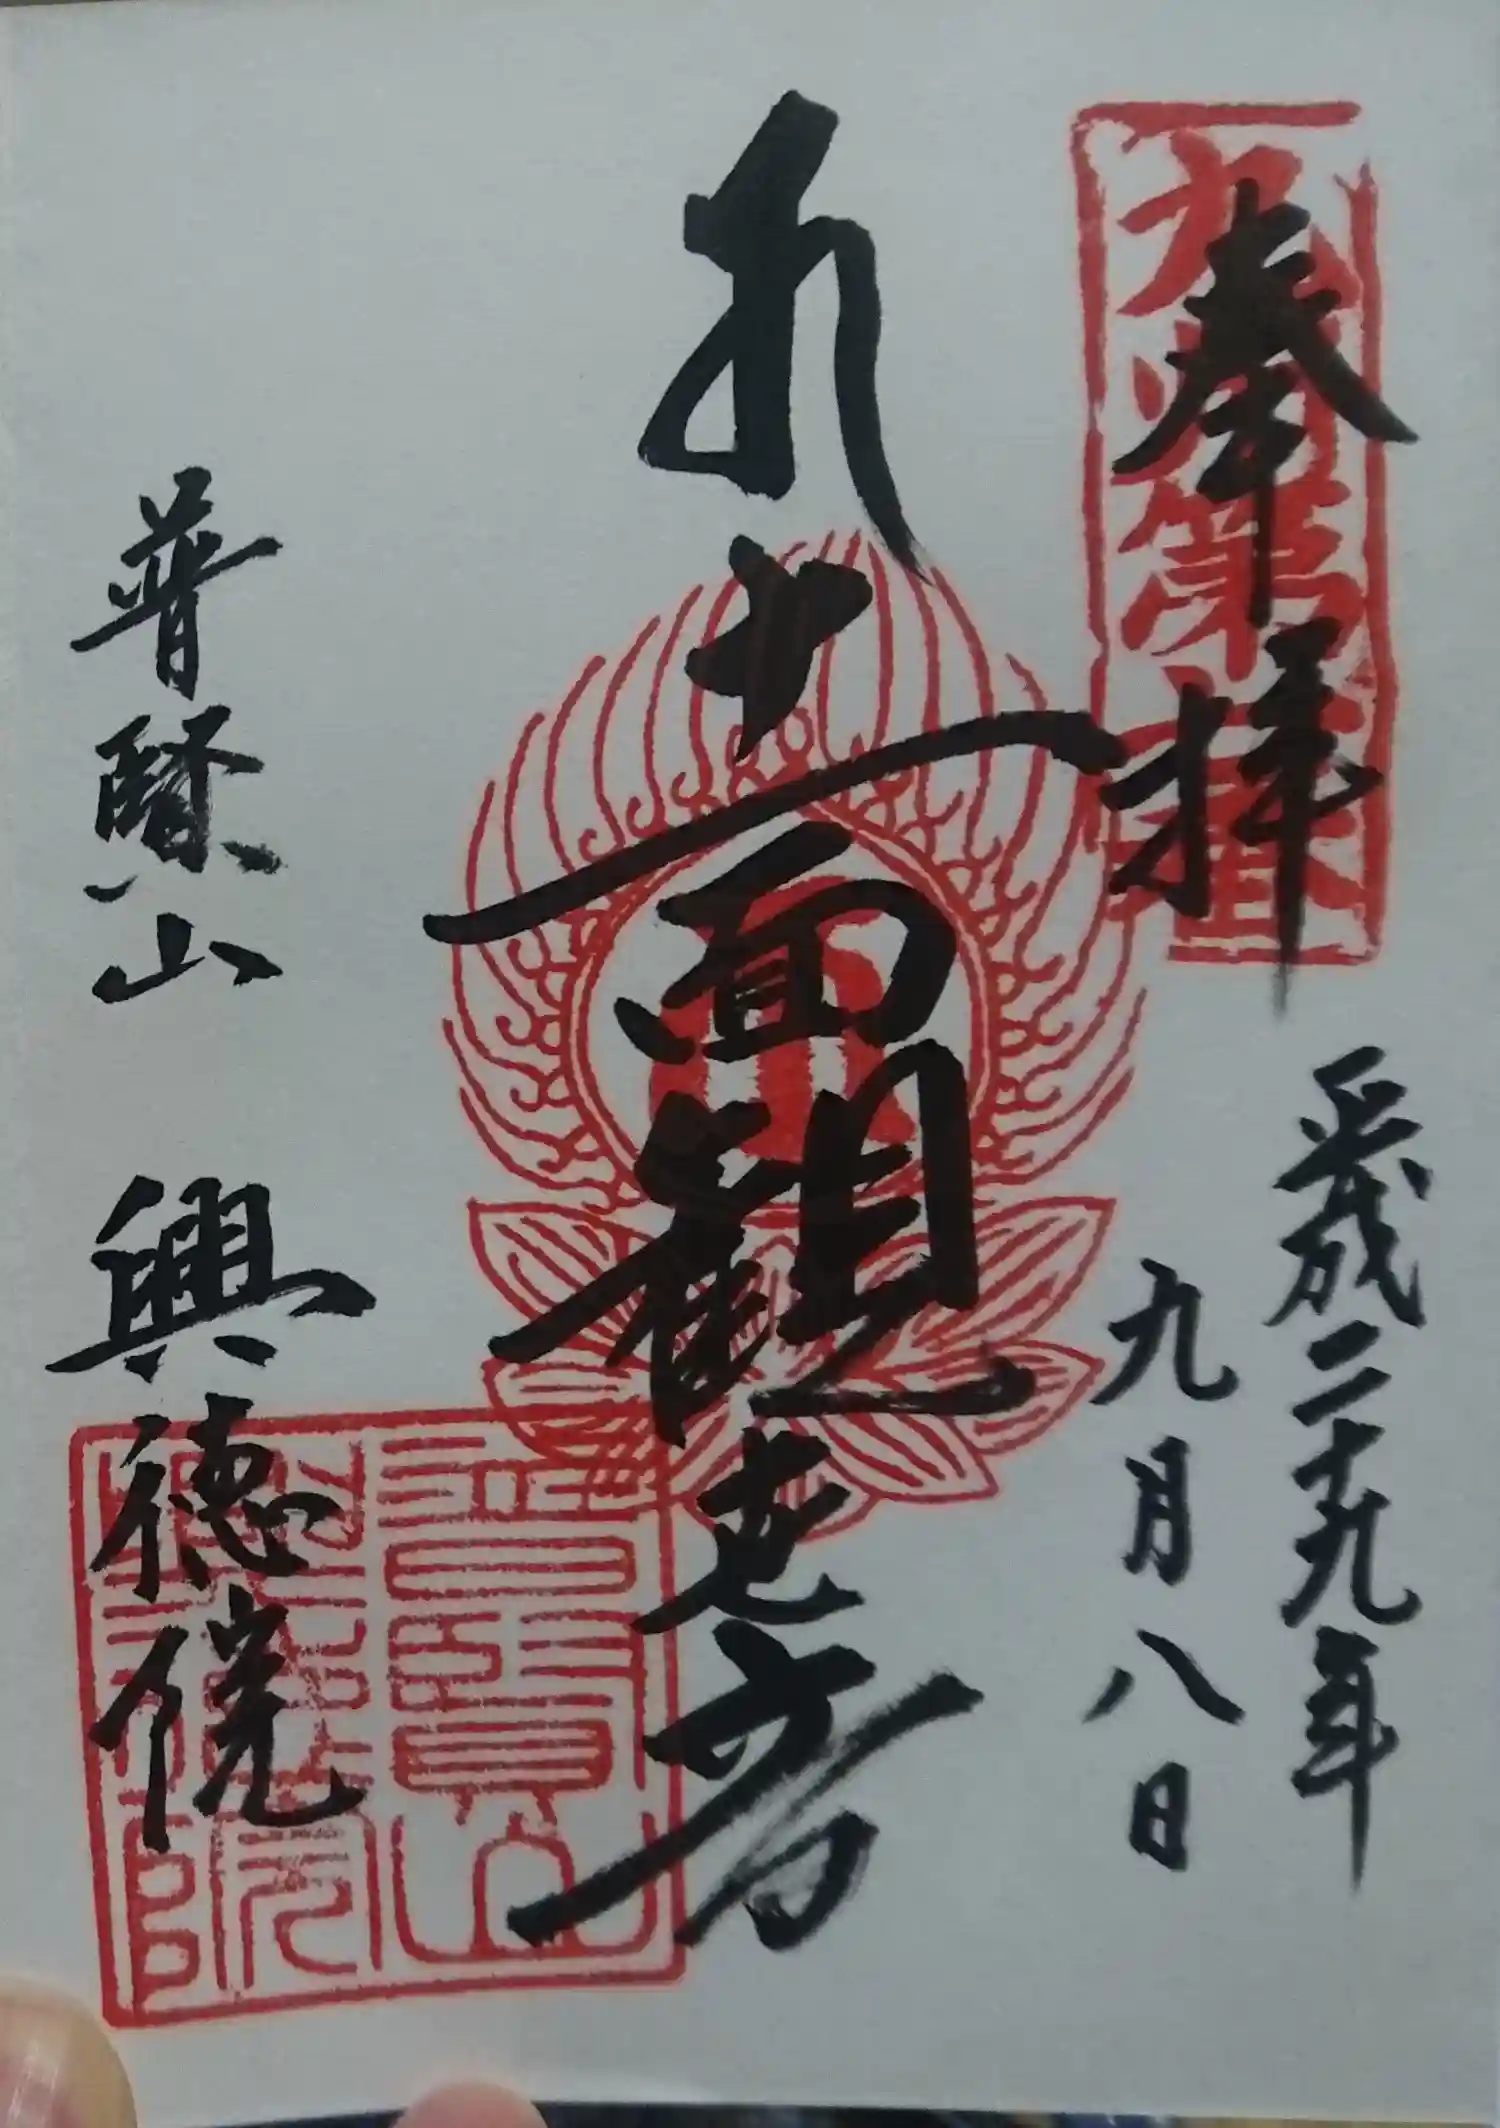 奉拝
平成二十九年
九月八日
十一面観世音
普賢山 興徳院
普賢山
興徳院